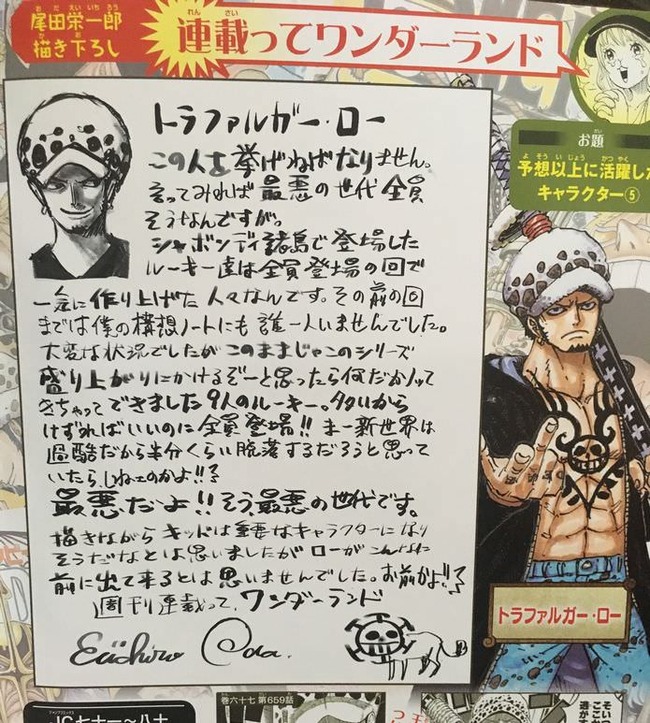 尾田栄一郎
描き下ろし
連載ってワンダーランド
お題
予想以上に活躍した
キャラクター⑤
トラファルガー・ロー
この人を挙げねばなりません。
言ってみれば最悪の世代全員
そうなんですが。
シャボンディ諸島で登場した
ルーキー達は全員登場の回で
一気に作り上げた人々なんです。その前の回
までは僕の構想ノートにも誰一人いませんでした。
大変な状況でしたがこのままじゃこのシリーズ
盛り上がりにかけるぞーと思ったら何だかノッて
きちゃってできました9人のルーキー。多いから
けずればいいのに全員登場!!まー新世界は
過酷だから半分くらい脱落するだろうと思って
いたら、しねェのかよ!!
最悪だよ!!そう最悪の世代です。
描きながらキッドは重要なキャラクターになり
そうだなとは思いましたがローがこんなに
前に出て来るとは思いませんでした。お前かよ!!
週刊連載って、ワンダーランド
Eiichiro Oda.
トラファルガー・ロー
JC七十一〜八十
巻六十七 第659話